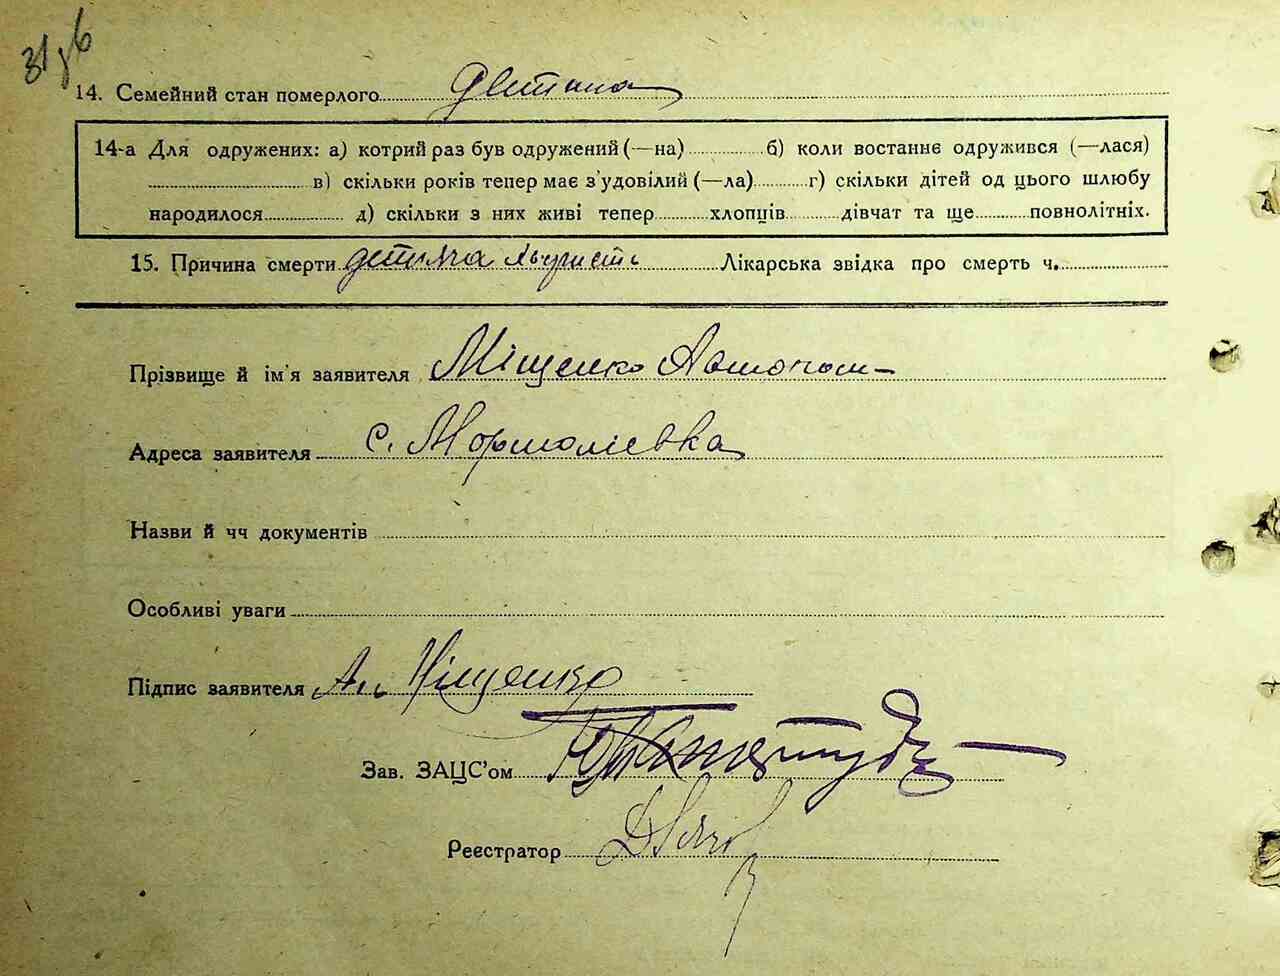 14. Семейний стан померлого Дитина
14-а Для одружених: а) котрий раз був одружений (—на) б) коли востаннє одружився (—лася)
в) скільки років тепер має з'удовілий (—ла) г) скільки дітей од цього шлюбу
народилося д) скільки з них живі тепер хлопців дівчат та ще повнолітніх.
15. Причина смерти дитяча Лікарська звідка про смерть ч.
Прізвище й ім'я заявителя Міщенко
Адреса заявителя с.
Назви й чч документів
Особливі уваги
Підпис заявителя Міщенко
Зав. ЗАЦС'ом
Реєстратор